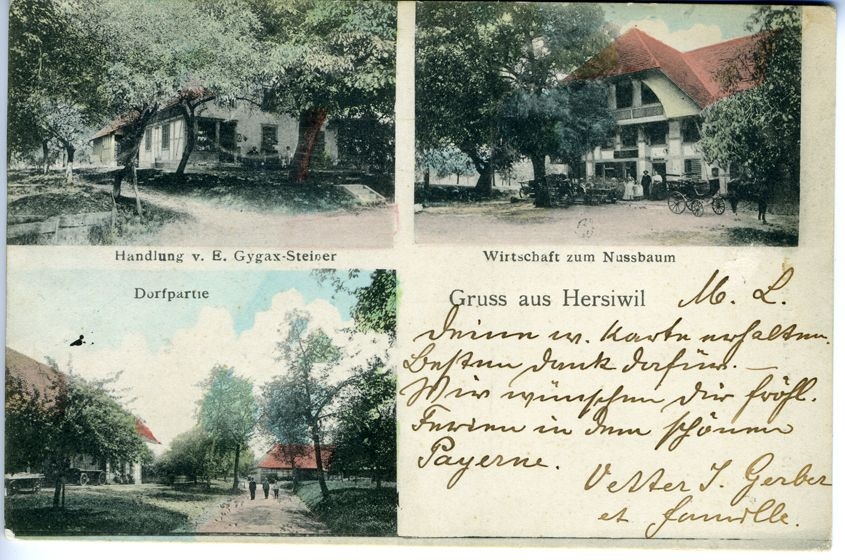 Handlung v. E. Gygax-Steiner
Wirtschaft zum Nussbaum
Dorfpartie
Gruss aus Hersiwil
M. L.
Deine w. Karte erhalten.
Besten Dank dafür. —
Wir wünschen Dir fröhl.
Ferien in dem schönen
Payerne.
Vetter J. Gerber
et famille.